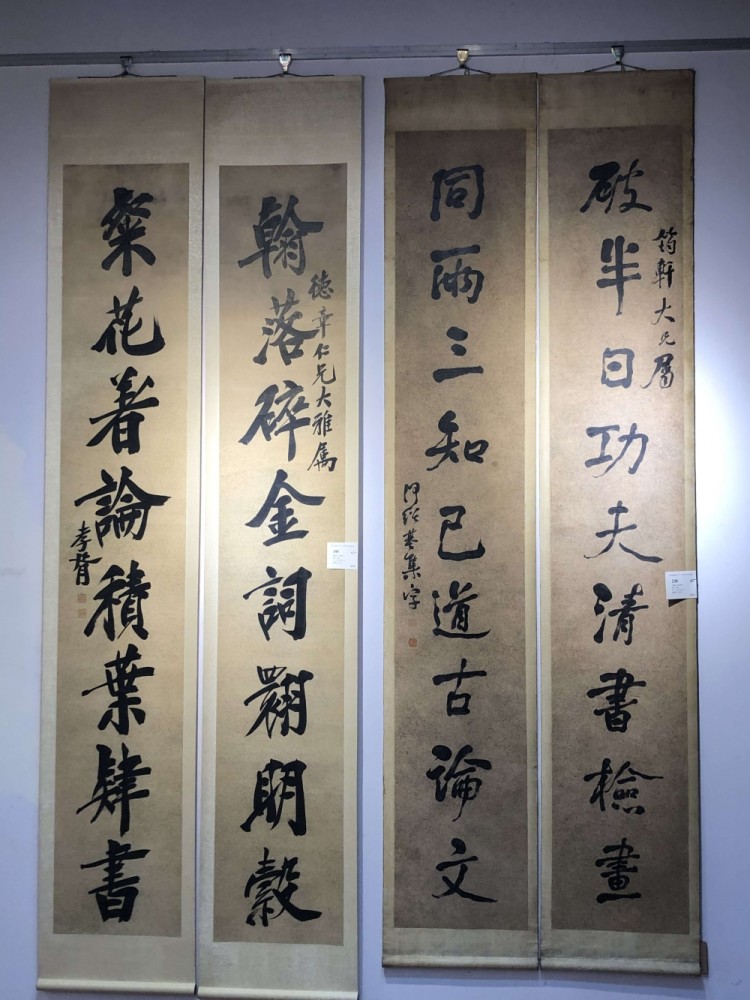 破半日功夫清書檢畫
筠軒大兄屬
同兩三知己道古論文
何紹基集字
翰落碎金詞朙縠
德章仁兄大雅屬
粲花著論積葉肆書
孝胥